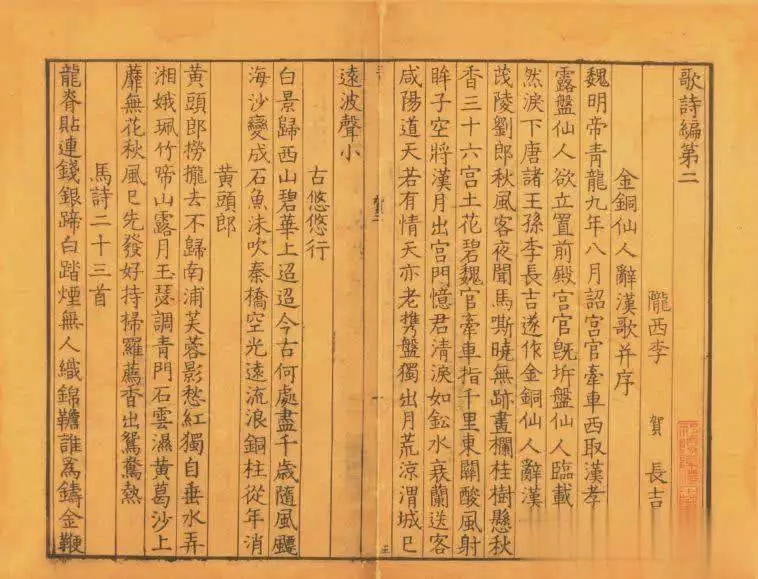 歌詩編第二
隴西李 賀 長吉
金銅仙人辭漢歌并序
魏明帝青龍九年八月詔宮官牽車西取漢孝
露盤仙人欲立置前殿宮官旣坼盤仙人臨載
然淚下唐諸王孫李長吉遂作金銅仙人辭漢
茂陵劉郎秋風客夜聞馬嘶曉無跡畫欄桂樹懸秋
香三十六宮土花碧魏官牽車指千里東關酸風射
眸子空將漢月出宮門憶君清淚如鈆水衰蘭送客
咸陽道天若有情天亦老携盤獨出月荒涼渭城已
遠波聲小
古悠悠行
白景歸西山碧華上迢迢今古何處盡千歲隨風飄
海沙變成石魚沫吹秦橋空光遠流浪銅柱從年消
黃頭郎
黃頭郎撈攏去不歸南浦芙蓉影愁紅獨自垂水弄
湘娥珮竹啼山露月玉瑟調青門石雲濕黃葛沙上
蘼無花秋風已先發好持掃羅薦香出鴛鴦熱
馬詩二十三首
龍脊貼連錢銀蹄白踏煙無人織錦韂誰為鑄金鞭